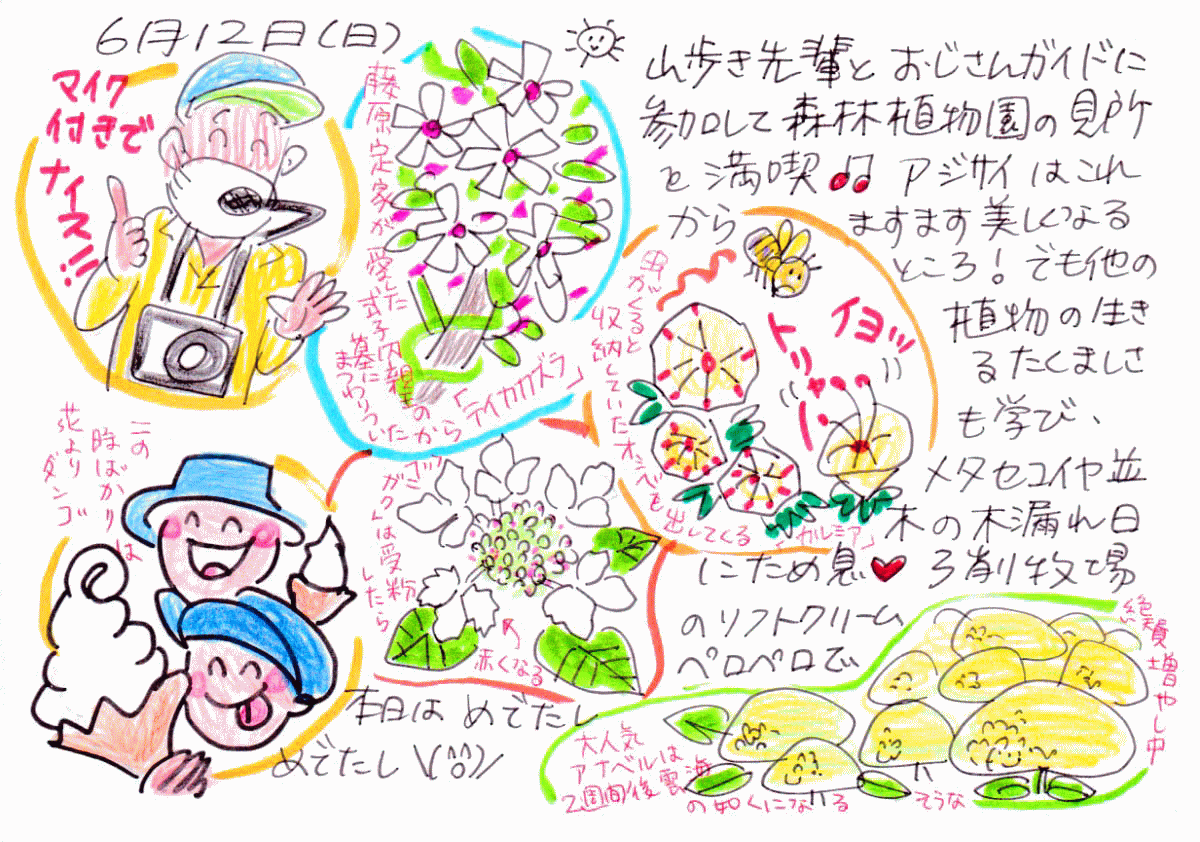 6月12日(日)
マイク
付きで
ナイス!!!
藤原定家が愛した
式子内親王の
墓にからまつわりついた
「テイカカズラ」
山歩き先輩と おじさんガイドに
参加して 森林植物園の見所
を満喫♫ アジサイはこれ
から ますます美しくなる
ところ! でも他の
植物の生き
るたくましさ
も学び、
メタセコイヤ並
木の木漏れ日
にため息♥
牧場
のソフトクリーム
ペロペロで
本日は めでたし
めでたし \(^o^)/
虫がくると
収納していた
オシベを出してくる
「カルミア」
イヨッ
トリャー
ガクは受粉
したら
赤くなる
この
時ばかりは
花より
ダンゴ
大人気
アナベルは
2週間後雲海
の如くになる そうな
絶賛増やし中